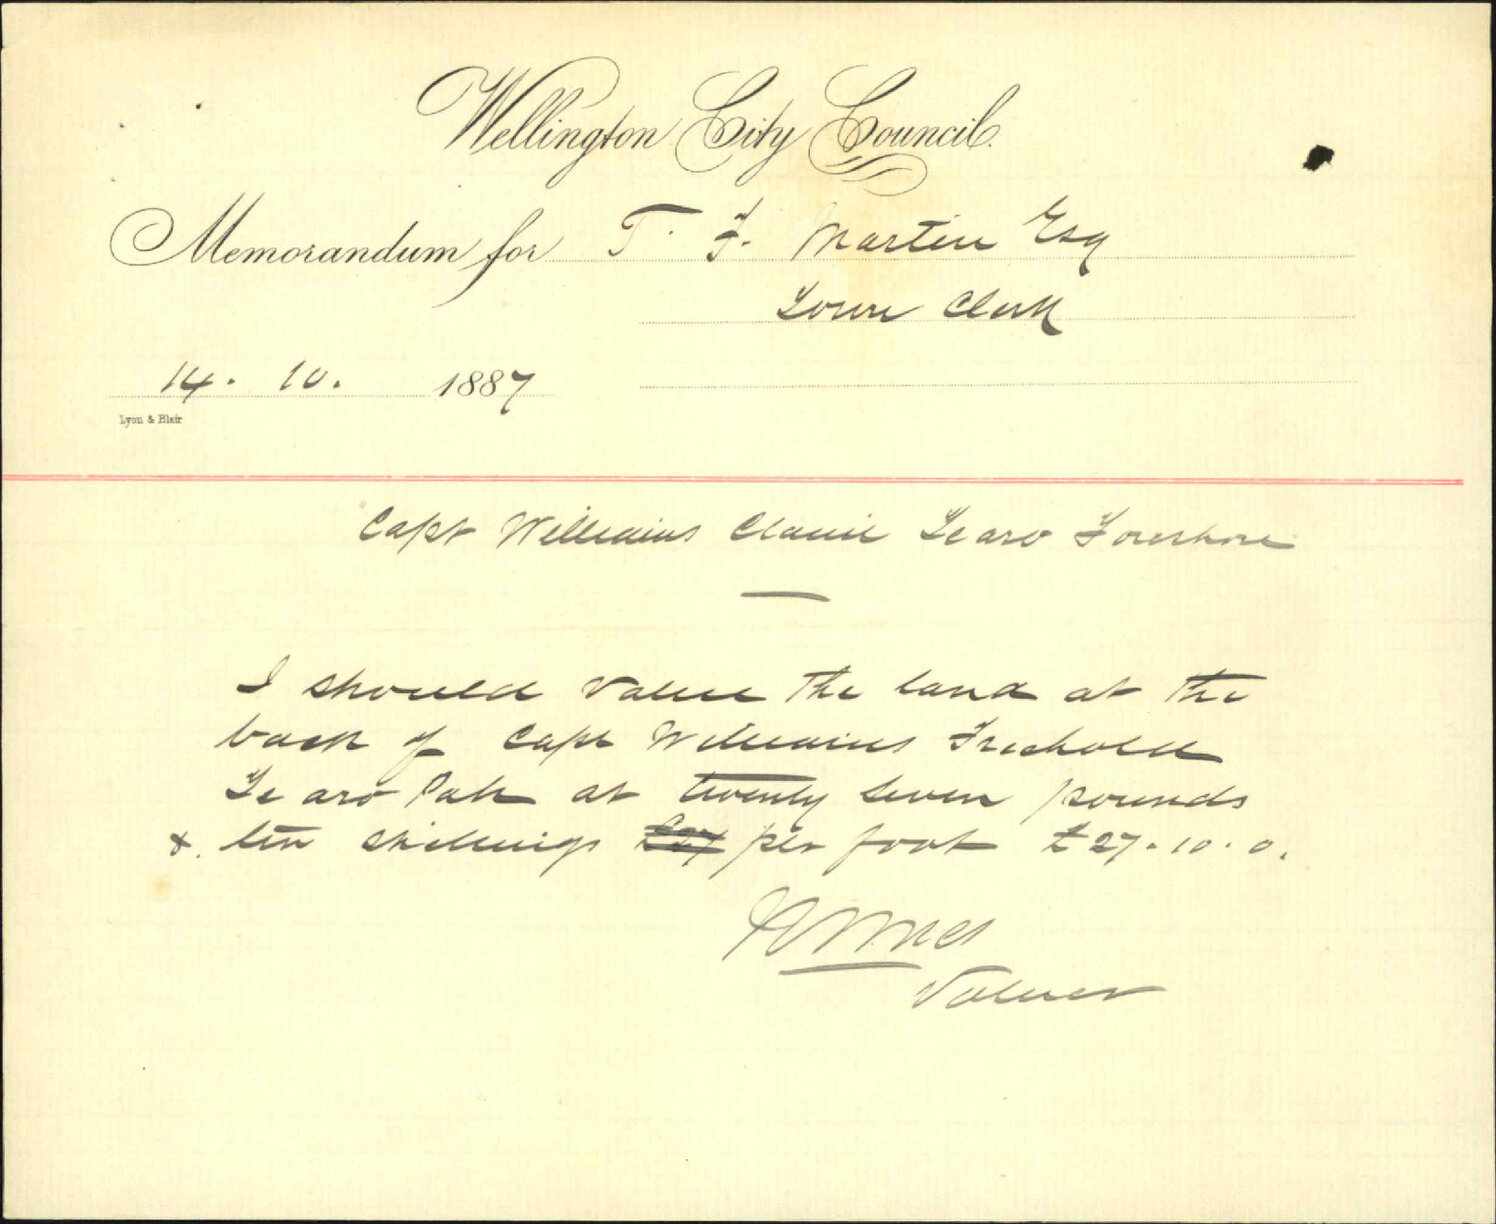 Wellington City Council.
Memorandum for T. F. Martin Esq
Town Clerk
14. 10. 1887
Lyon & Blair
Capt Williams Claim Te aro Foreshore
I should value the land at the
back of Capt Williams Freehold
Te aro Pah at twenty seven pounds
& ten shillings per foot £27.10.0.
Valuer